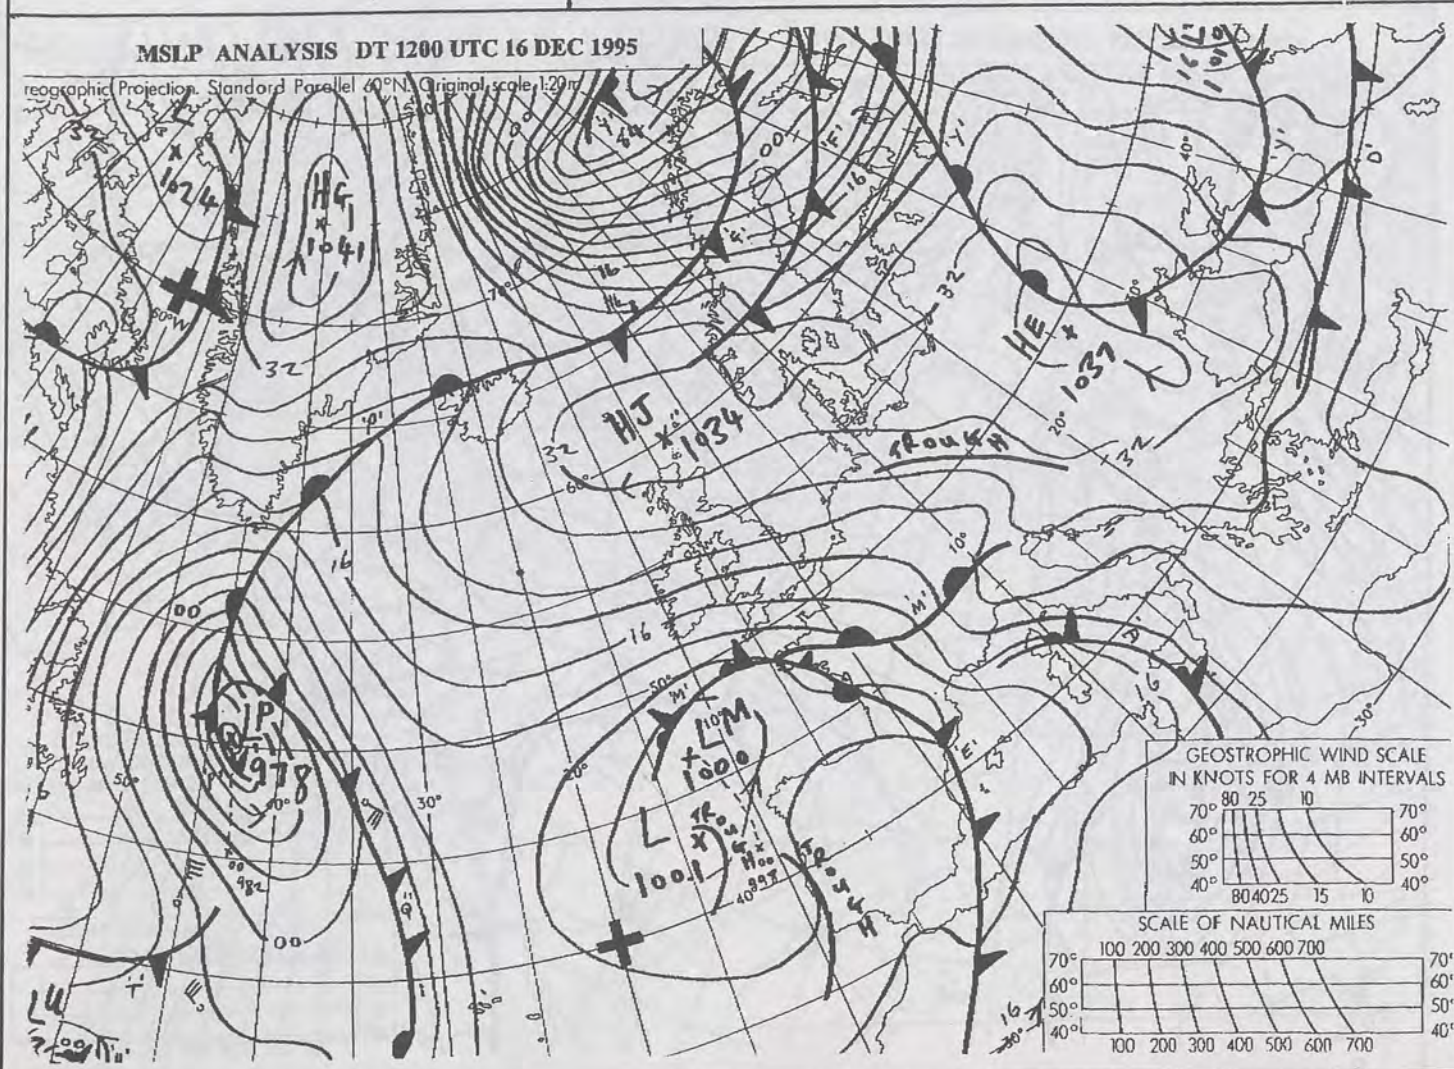 MSLP ANALYSIS DT 1200 UTC 16 DEC 1995
reographic Projection. Standard Parallel 60°N. Original scale 1:20m
32
L
1024
HG
1041
00
00
'F'
16
'Y'
16
'Y'
40°
'D'
60°W
70°
0
16
32
32
HE
1037
HJ
1034
32
60°
20°
TROUGH
32
10°
16
00
16
'M'
50°
'M'
10°
LM
1000
LP
978
50°
40°
30°
20°
'E'
16
30°
L
1001
TROUGH
998
40°
TROUGH
982
00
'Q'
LU
'T'
16
30°
GEOSTROPHIC WIND SCALE
IN KNOTS FOR 4 MB INTERVALS
80 25 10
70° 70°
60° 60°
50° 50°
40° 40°
80 40 25 15 10
SCALE OF NAUTICAL MILES
100 200 300 400 500 600 700
70° 70°
60° 60°
50° 50°
40° 40°
100 200 300 400 500 600 700